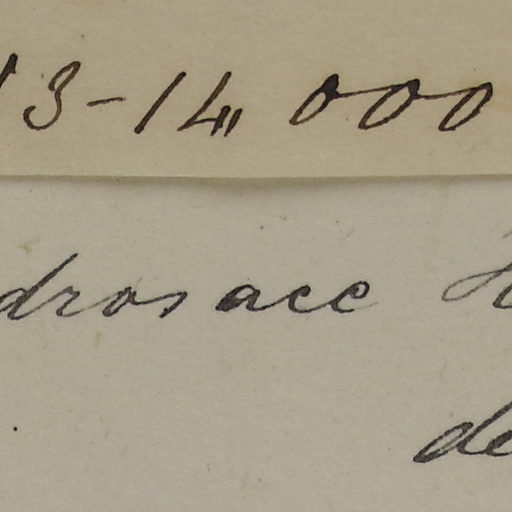 13-14,000
drosace
de